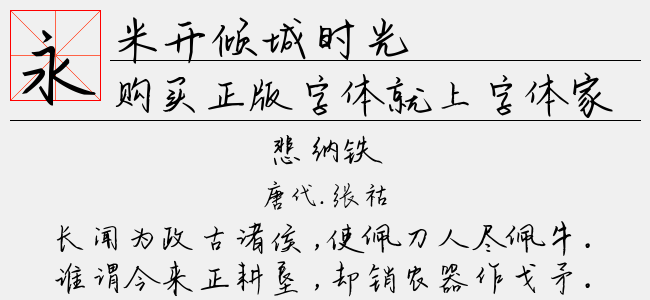 永
米开倾城时光
购买正版字体就上字体家
悲纳铁
唐代.张祜
长闻为政古诸侯,使佩刀人尽佩牛.
谁谓今来正耕垦,却销农器作戈矛.